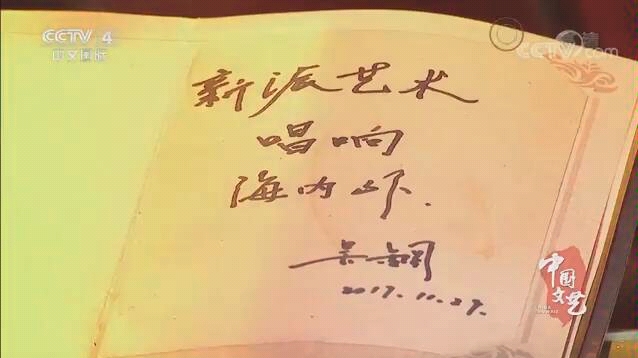 CCTV 4
中文国际
CCTV.com
新派艺术
唱响
海内外.
2017.11.29.
中国
文艺